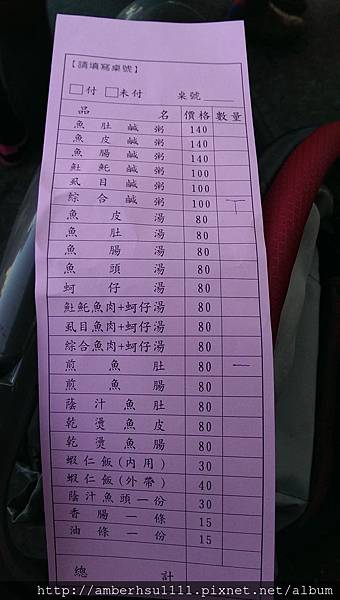 【請填寫桌號】
□付 □未付 桌號
品名 價格 數量
魚肚鹹粥 140
魚皮鹹粥 140
魚腸鹹粥 140
𩵚魠鹹粥 100
虱目鹹粥 100
綜合鹹粥 100 丅
魚皮湯 80
魚肚湯 80
魚腸湯 80
魚頭湯 80
蚵仔湯 80
𩵚魠魚肉+蚵仔湯 80
虱目魚肉+蚵仔湯 80
綜合魚肉+蚵仔湯 80
煎魚肚 80 一
煎魚腸 80
蔭汁魚肚 80
乾燙魚皮 80
乾燙魚腸 80
蝦仁飯(內用) 30
蝦仁飯(外帶) 40
蔭汁魚頭一份 30
香腸一條 15
油條一份 15
總計
http://amberhsu1111.pixnet.net/album